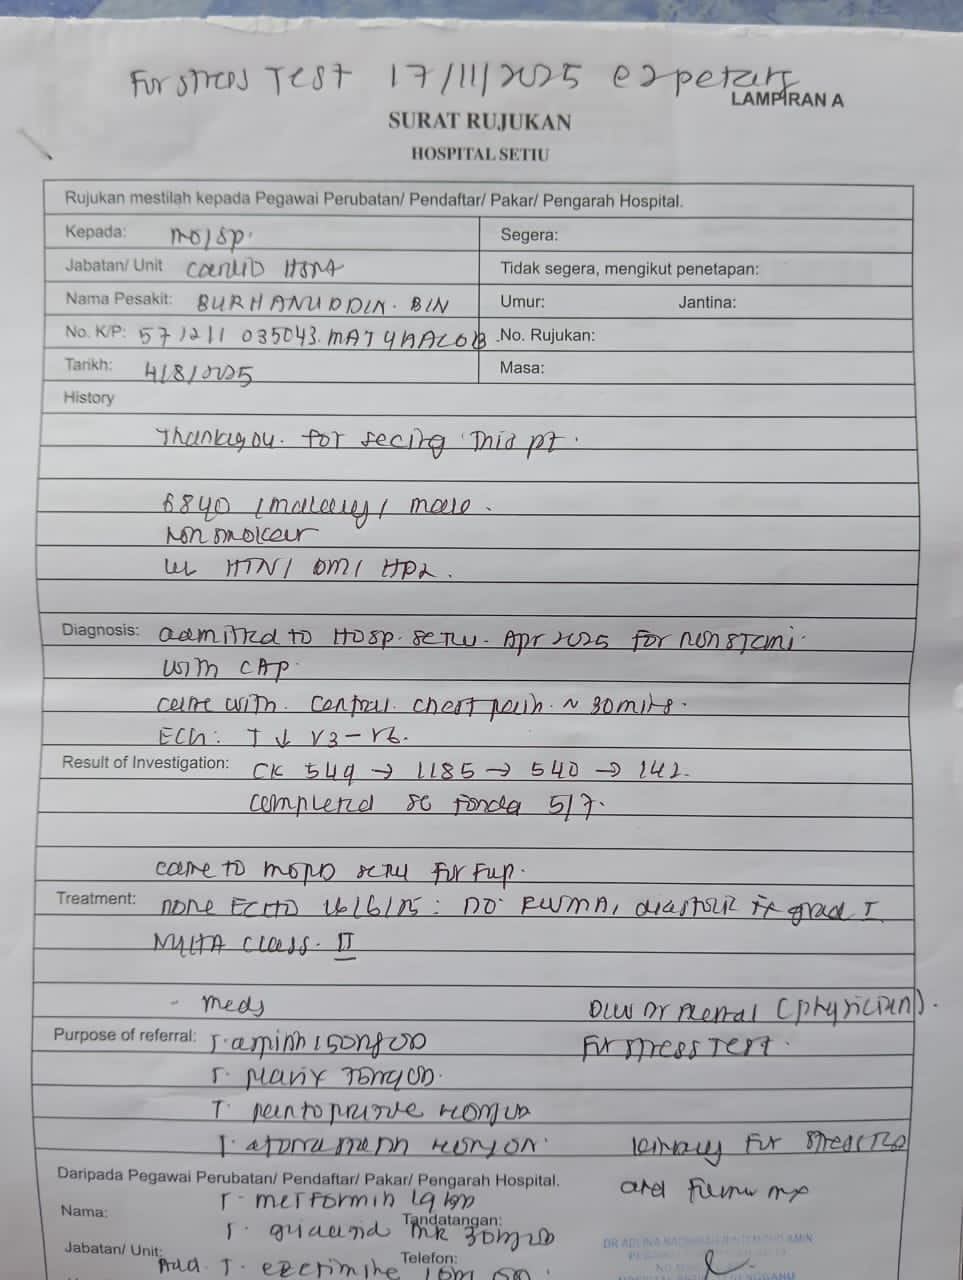 For stress Test 17/11/2025 @ 2petang
LAMPIRAN A
SURAT RUJUKAN
HOSPITAL SETIU
Rujukan mestilah kepada Pegawai Perubatan/ Pendaftar/ Pakar/ Pengarah Hospital.
Kepada: mo/sp. Segera:
Jabatan/ Unit Tidak segera, mengikut penetapan:
Nama Pesakit: BURHANUDDIN BIN Umur: Jantina:
No. K/P: 571211 035043. MAT YAACOB No. Rujukan:
Tarikh: 4/8/2025 Masa:
History
Thankyou for seeing this pt.
68yo / malay / male.
Non smoker
HTN / DM / HPL.
Diagnosis: admitted to Hosp. setiu. Apr 2025 for nonstemi
with CAP.
came with. central chest pain ~ 30mins.
ECG: T ↓ V3-V6.
Result of Investigation: CK 549 → 1185 → 540 → 142.
completed sc fonda 5/7.
came to mopd setiu for fup.
Treatment: done ECHO 16/6/25: no RWMA, diastolic grad I
NYHA class. II
- meds D/W Dr (physician).
Purpose of referral: T. 150mg OD For stress Test.
T. plavix 75mg OD.
T. pantoprazole 40mg
T. atorvastatin 40mg ON. for stress
Daripada Pegawai Perubatan/ Pendaftar/ Pakar/ Pengarah Hospital. and further mx
T. metformin 1g
Nama: Tandatangan:
T. MR 30mg
Jabatan/ Unit: Telefon:
Add. T. ezetimibe 10mg